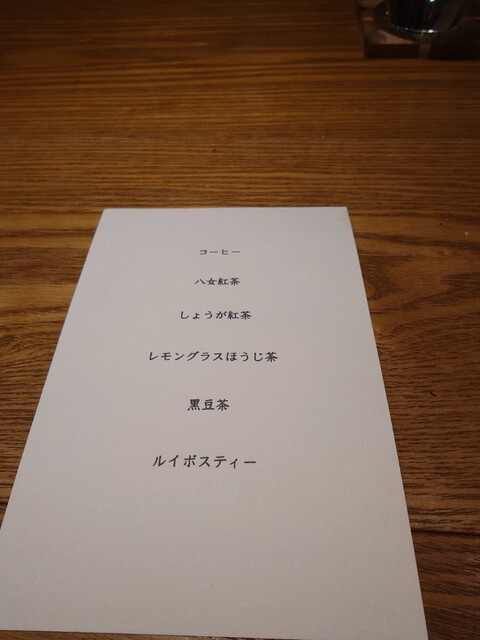 コーヒー
八女紅茶
しょうが紅茶
レモングラスほうじ茶
黒豆茶
ルイボスティー